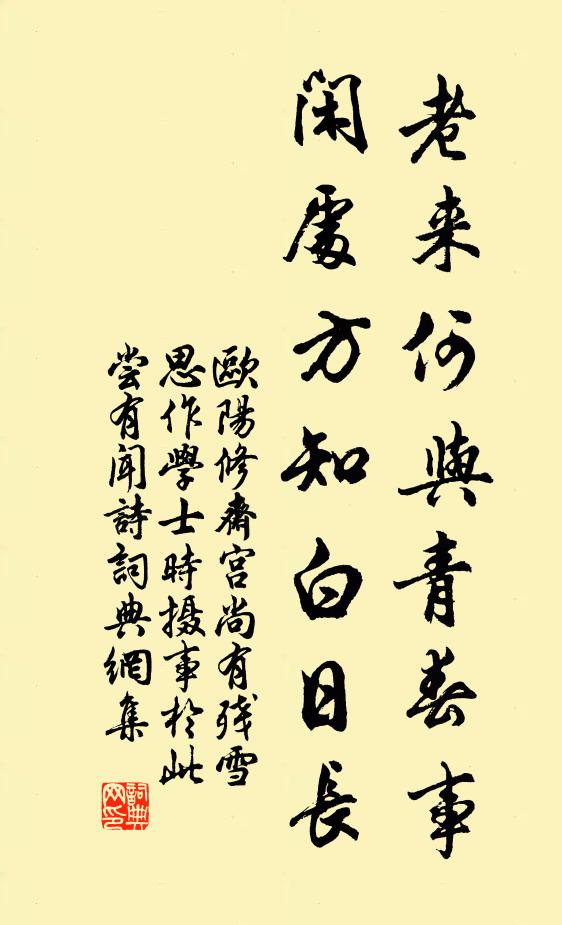 老来何與青春事
閑處方知白日長
歐陽修齋宮尚有殘雪
思作學士時摄事於此
尝有闻詩詞典網集
詞典网印